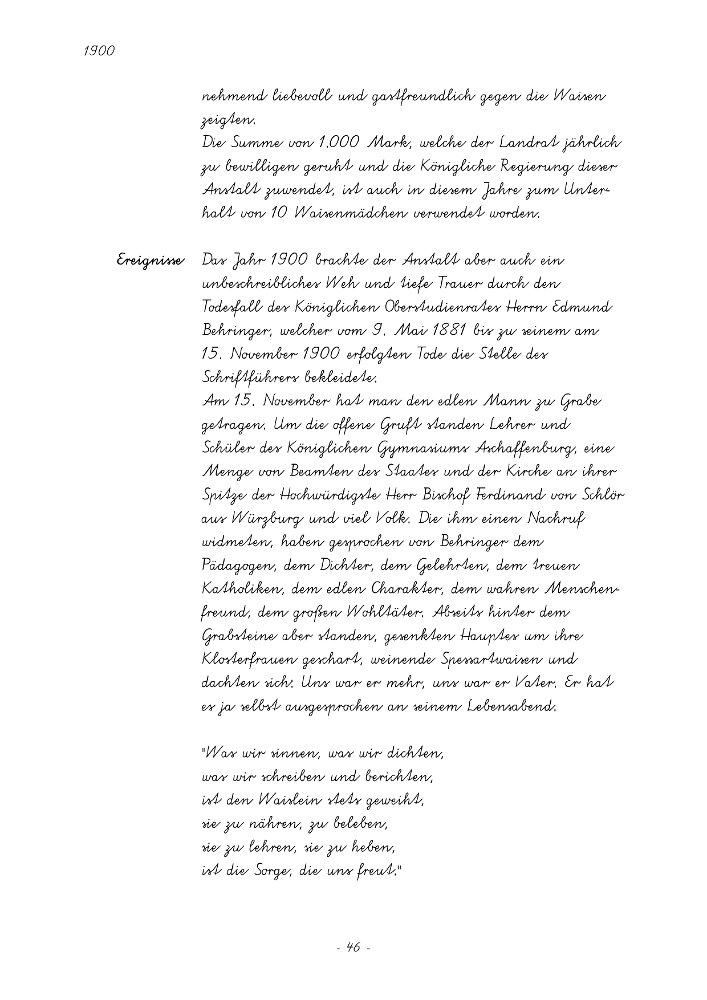 1900
nehmend liebevoll und gastfreundlich gegen die Waisen
zeigten.
Die Summe von 1.000 Mark, welche der Landrat jährlich
zu bewilligen geruht und die Königliche Regierung dieser
Anstalt zuwendet, ist auch in diesem Jahre zum Unter-
halt von 10 Waisenmädchen verwendet worden.
Ereignisse Das Jahr 1900 brachte der Anstalt aber auch ein
unbeschreibliches Weh und tiefe Trauer durch den
Todesfall des Königlichen Oberstudienrates Herrn Edmund
Behringer, welcher vom 9. Mai 1881 bis zu seinem am
15. November 1900 erfolgten Tode die Stelle des
Schriftführers bekleidete.
Am 15. November hat man den edlen Mann zu Grabe
getragen. Um die offene Gruft standen Lehrer und
Schüler des Königlichen Gymnasiums Aschaffenburg, eine
Menge von Beamten des Staates und der Kirche an ihrer
Spitze der Hochwürdigste Herr Bischof Ferdinand von Schlör
aus Würzburg und viel Volk. Die ihm einen Nachruf
widmeten, haben gesprochen von Behringer dem
Pädagogen, dem Dichter, dem Gelehrten, dem treuen
Katholiken, dem edlen Charakter, dem wahren Menschen-
freund, dem großen Wohltäter. Abseits hinter dem
Grabsteine aber standen, gesenkten Hauptes um ihre
Klosterfrauen geschart, weinende Spessartwaisen und
dachten sich: Uns war er mehr, uns war er Vater. Er hat
es ja selbst ausgesprochen an seinem Lebensabend.
"Was wir sinnen, was wir dichten,
was wir schreiben und berichten,
ist den Waislein stets geweiht,
sie zu nähren, zu beleben,
sie zu lehren, sie zu heben,
ist die Sorge, die uns freut."
- 46 -